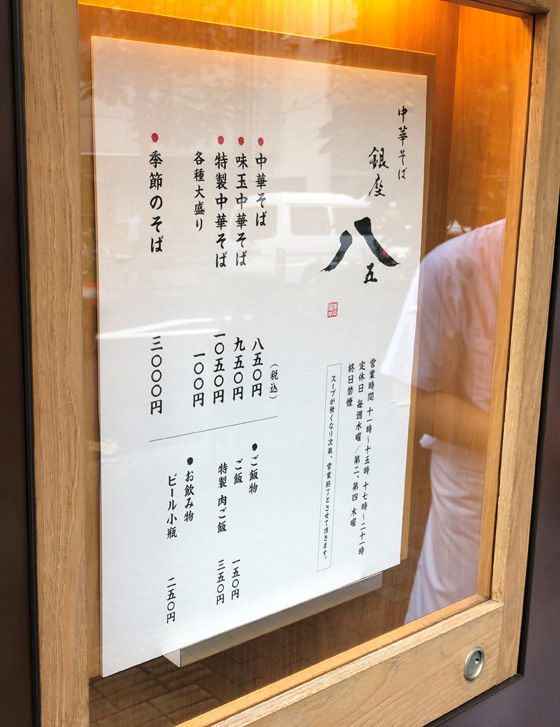 中華そば
銀座
八五
営業時間 十一時〜十五時 十七時〜二十一時
定休日 毎週水曜／第二、第四 木曜
終日禁煙
スープが無くなり次第、営業終了とさせて頂きます。
（税込）
●中華そば 八五〇円
●味玉中華そば 九五〇円
●特製中華そば 一〇五〇円
各種大盛り 一〇〇円
●季節のそば 三〇〇〇円
●ご飯物
ご飯 一五〇円
特製 肉ご飯 三五〇円
●お飲み物
ビール小瓶 二五〇円